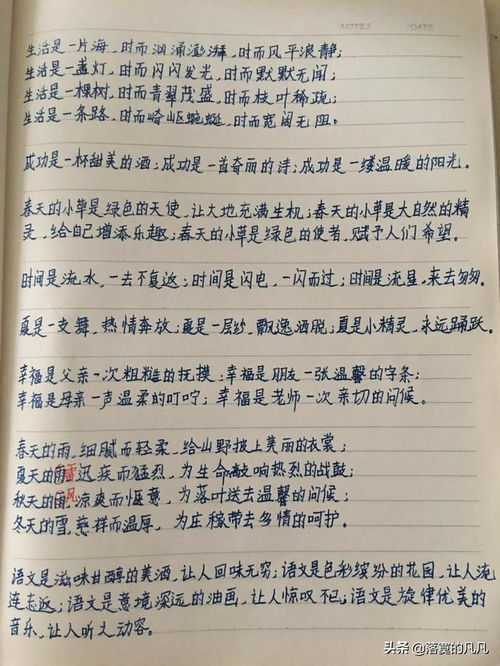 NOTES DATE
生活是一片海，时而汹涌澎湃，时而风平浪静；
生活是一盏灯，时而闪闪发光，时而默默无闻；
生活是一棵树，时而青翠茂盛，时而枝叶稀疏；
生活是一条路，时而崎岖蜿蜒，时而宽阔无阻。
成功是一杯甜美的酒；成功是一首奇丽的诗；成功是一缕温暖的阳光。
春天的小草是绿色的天使，让大地充满生机；春天的小草是大自然的精
灵，给自己增添乐趣；春天的小草是绿色的使者，赋予人们希望。
时间是流水，一去不复返；时间是闪电，一闪而过；时间是流星，来去匆匆。
夏是一支舞，热情奔放；夏是一层纱，飘逸洒脱；夏是小精灵，永远踊跃。
幸福是父亲一次粗糙的抚摸；幸福是朋友一张温馨的字条；
幸福是母亲一声温柔的叮咛；幸福是老师一次亲切的问候。
春天的雨，细腻而轻柔，给山野披上美丽的衣裳；
夏天的雷，迅疾而猛烈，为生命敲响热烈的战鼓；
秋天的风，凉爽而惬意，为落叶送去温馨的问候；
冬天的雪，慈祥而温厚，为庄稼带去多情的呵护。
语文是滋味甘醇的美酒，让人回味无穷；语文是色彩缤纷的花园，让人流
连志返；语文是意境深远的油画，让人惊叹不已；语文是旋律优美的
音乐，让人听之动容。
头条 @落寞的凡凡